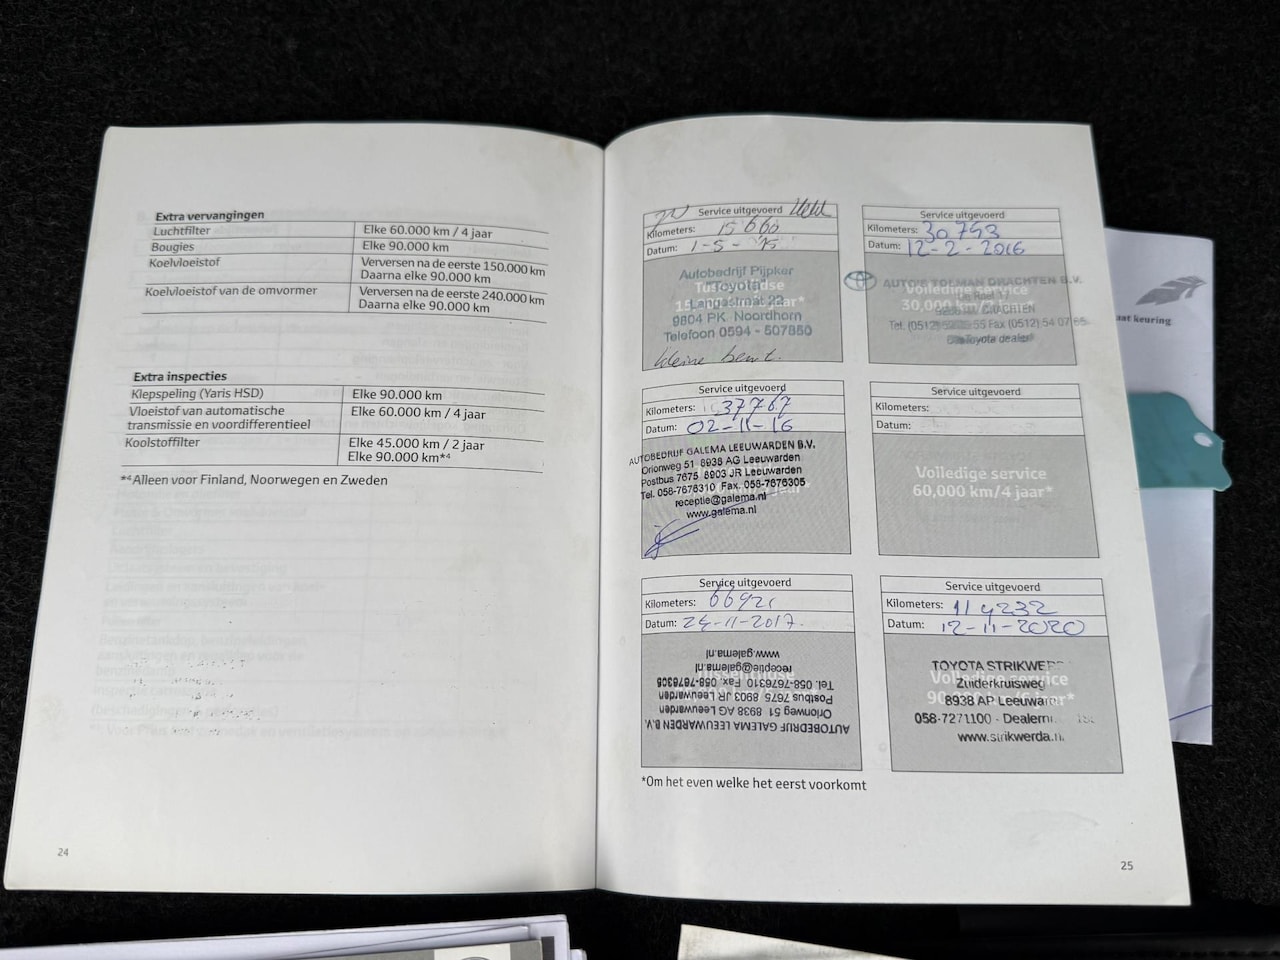 Extra vervangingen
Luchtfilter Elke 60.000 km / 4 jaar
Bougies Elke 90.000 km
Koelvloeistof Verversen na de eerste 150.000 km
Daarna elke 90.000 km
Koelvloeistof van de omvormer Verversen na de eerste 240.000 km
Daarna elke 90.000 km
Extra inspecties
Klepspeling (Yaris HSD) Elke 90.000 km
Vloeistof van automatische
transmissie en voordifferentieel Elke 60.000 km / 4 jaar
Koolstoffilter Elke 45.000 km / 2 jaar
Elke 90.000 km*4
*4Alleen voor Finland, Noorwegen en Zweden
24
Service uitgevoerd
Kilometers: 15 660
Datum: 1-5-'15
Autobedrijf Pijpker
"Toyota"
Langestraat 22
9804 PK Noordhorn
Telefoon 0594 - 507850
kleine beurt.
Service uitgevoerd
Kilometers: 30 793
Datum: 12-2-2016
AUTO'S TOLMAN DRACHTEN B.V.
Volledige service
30,000 km/2 jaar*
DRACHTEN
Fax (0512) 54 07 65
Toyota dealer
Service uitgevoerd
Kilometers: 37767
Datum: 02-11-16
AUTOBEDRIJF GALEMA LEEUWARDEN B.V.
Orionweg 51 8938 AG Leeuwarden
Postbus 7675 8903 JR Leeuwarden
Tel. 058-7676310 Fax. 058-7676305
receptie@galema.nl
www.galema.nl
Service uitgevoerd
Kilometers:
Datum:
Volledige service
60,000 km/4 jaar*
Service uitgevoerd
Kilometers:
Datum: 24-11-2017.
AUTOBEDRIJF GALEMA LEEUWARDEN B.V.
Orionweg 51 8938 AG Leeuwarden
Postbus 7675 8903 JR Leeuwarden
Tel. 058-7676310 Fax. 058-7676305
receptie@galema.nl
www.galema.nl
Service uitgevoerd
Kilometers: 114232
Datum: 12-11-2020
TOYOTA STRIKWER
Volledige service
Zuiderkruisweg
8938 AP Leeuwar
058-7271100 - Dealern
www.strikwerda.n
*Om het even welke het eerst voorkomt
25
aat keuring